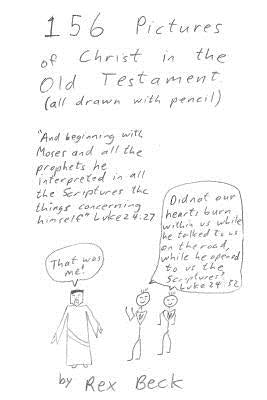 156 Pictures
of Christ in the
Old Testament.
(all drawn with pencil)
"And beginning with
Moses and all the
prophets he
interpreted in all
the Scriptures the
things concerning
himself" Luke 24:27
Did not our
hearts burn
within us while
he talked to us
on the road,
while he opened
to us the
Scriptures?
Luke 24:32
That was
me!
by Rex Beck